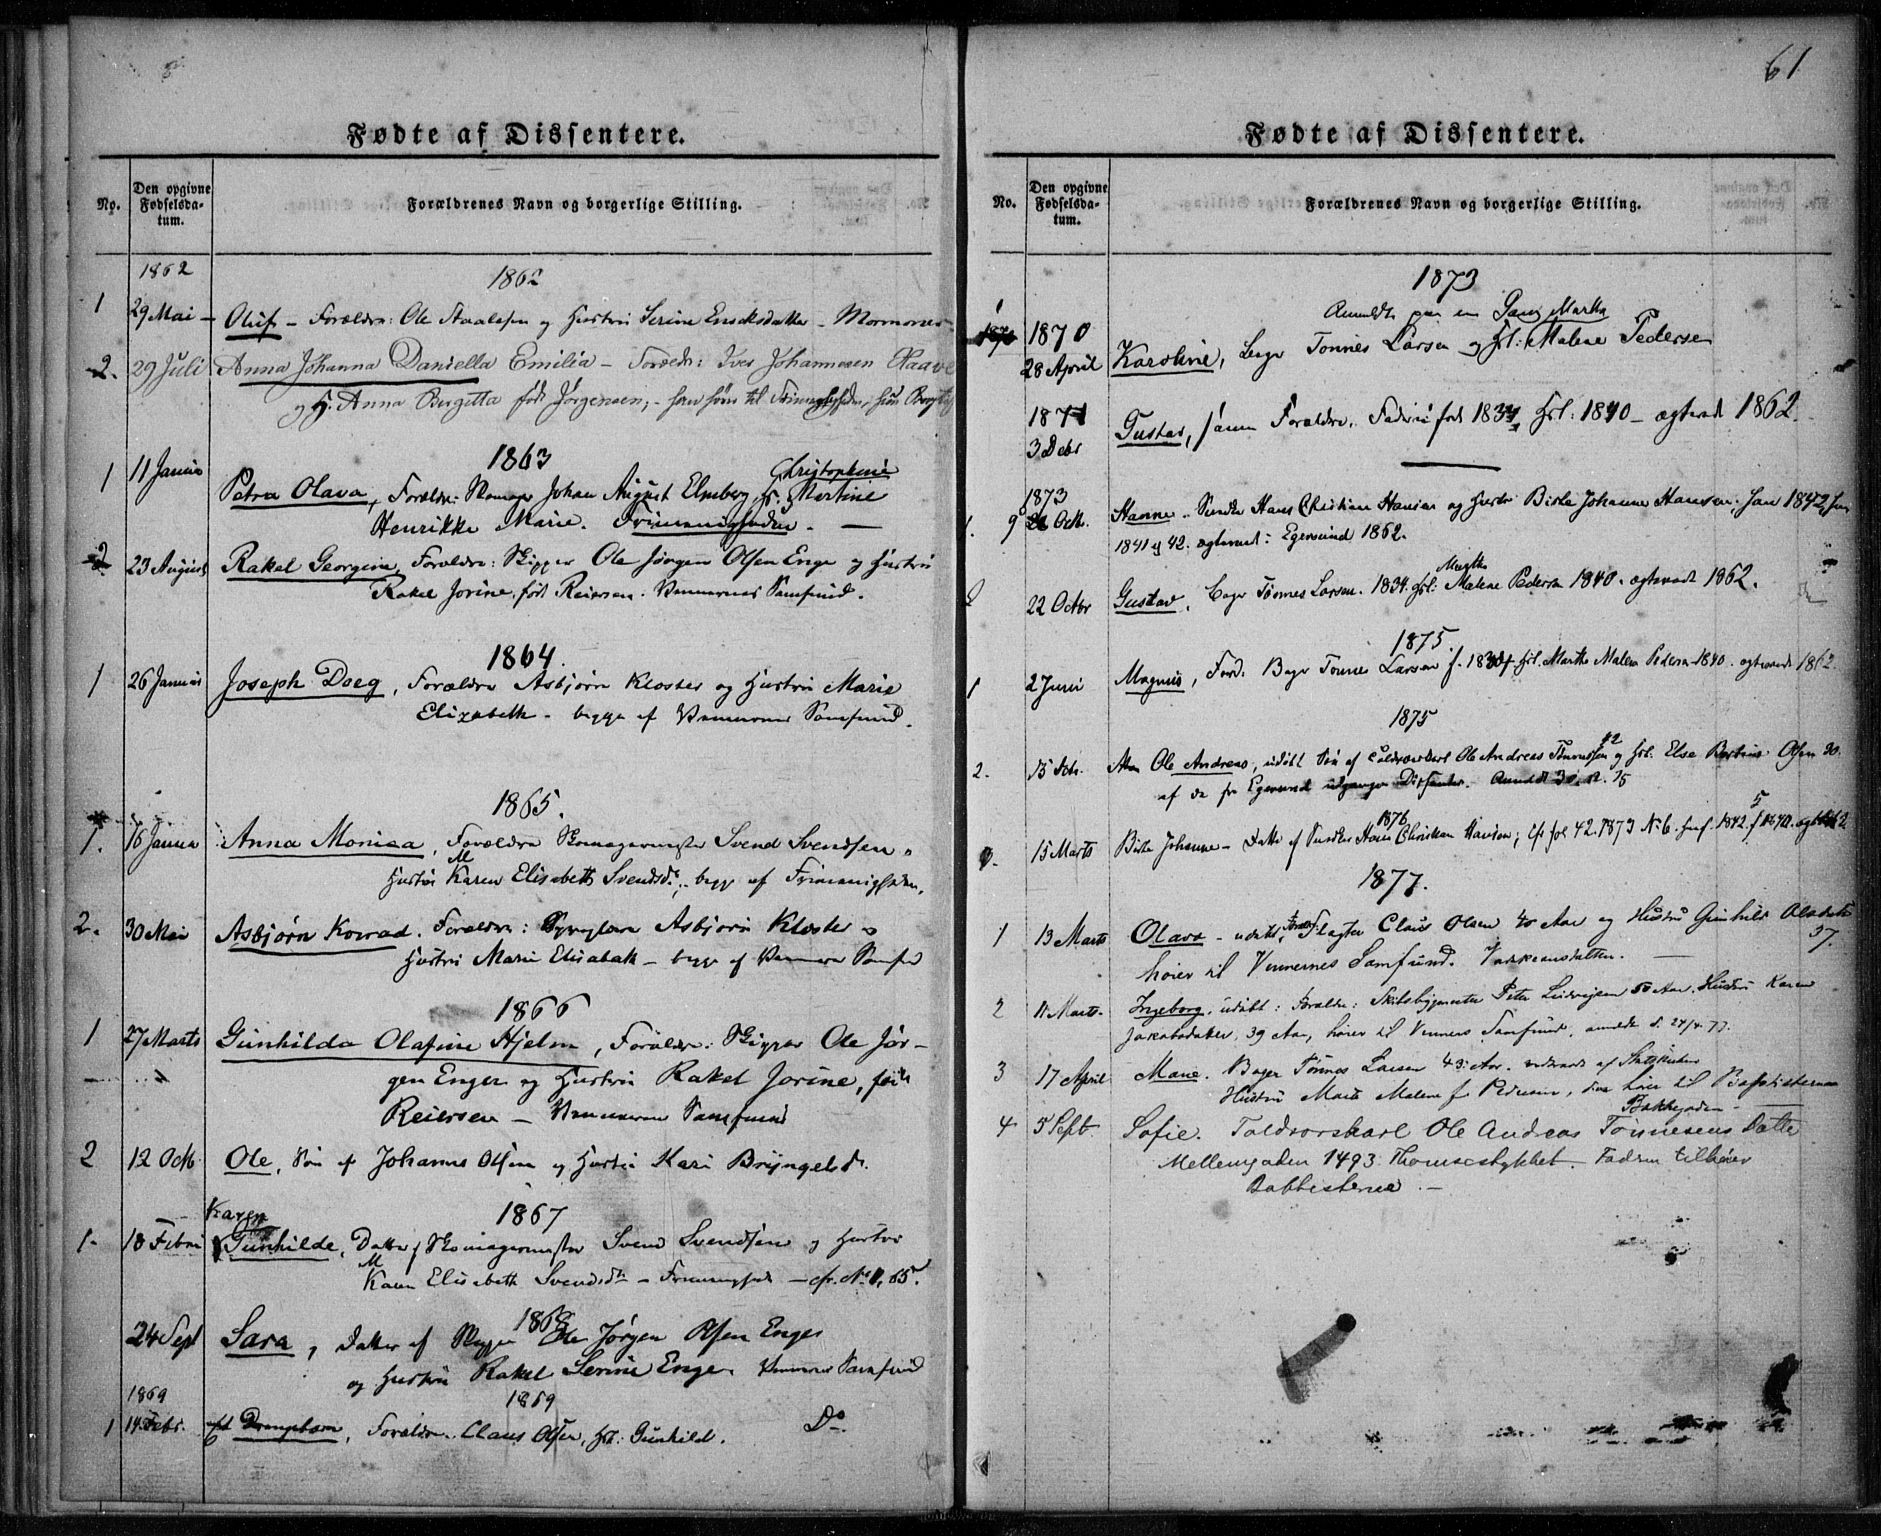 Fødte af Dissentere.
No.
Den opgivne Fødselsda-tum.
Forældrenes Navn og borgerlige Stilling.
1862
1862
1 29 Mai Oluf – Forældre: Ole og Hustru Serine – Mormoner
2. 29 Juli Anna Johanna Daniella Emilia – Foreldr: Johannesen
og H. Anna Birgitta født Jørgensen, – han hører til Frimenigheden, hun
1863
1 11 Januar Petra Olava, Forældre: Skomager Johan August Elmberg, H. Christophine Martine
Henrikke Marie. Frimenigheden. —
2 23 August Rakel Georgine, Forældre: Skipper Ole Jørgen Olsen Enge og Hustru
Rakel Jorine født Reiersen. Vennernes Samfund.
1864.
1 26 Januar Joseph Doeg, Forældre Asbjørn Kloster og Hustru Marie
Elizabeth – begge af Vennernes Samfund.
1865.
1. 16 Januar Anna Monica, Forældre Skomagermester Svend Svendsen
Hustru M Karen Elisabeth Svendsdr, – begge af Frimenigheden.
2. 30 Mai Asbjørn Konrad. Forældre: Asbjørn Kloster
Hustru Marie Elisabeth – begge af Samfund
1866
1 27 Marts Gunhilda Olafine Hjelm, Forældre: Skipper Ole Jør-
gen Enger og Hustru Rakel Jorine, født
Reiersen – Vennernes Samfund
2 12 Octb. Ole, Søn af Johannes Olsen og Hustru Kari Bryngelsd.
1867
1. 18 Febru Karen Gunhilde, Datter af Skomagermester Svend Svendsen og Hustru
M Karen Elisabeth Svendsdr – Frimenighed – cfr. No 1, 65.
1868
24 Sept Sara, Datter af Skipper Ole Jørgen Olsen Enger
og Hustru Rakel Serine Enge. Vennernes Samfund
1869
1869
1 14 Febr. Drengebarn, Forældre. Claus Olsen, Hst: Gunhild. Do
61
Fødte af Dissentere.
No.
Den opgivne Fødselsda-tum.
Forældrenes Navn og borgerlige Stilling.
1873
Anmeldt paa en Gang Martha
1870
28 April Karoline, Bager Tønnes Larsen og Hst: Malene Pedersen
1871
3 Decbr Gustav, samme Forældre. Faderen født 1834, Hst: 1840 – ægteviet 1862.
1873
1. 9 Octb. Hanne. Hans Christian Hansen og Hustru Birte Johanne Hansen;
1841 og 42. ægteviet: Egersund 1862.
2 22 Octbr Gustav, Bager Tønnes Larsen. 1834. Hst: Martha Malene Pedersen 1840. ægteviet 1862.
1875.
1 2 Juni Magnus, Foræld. Bager Tønnes Larsen f. 1834 Hst. Martha Malene Pedersen 1840. ægteviet 1862.
1875
2. Ole Andreas, udøbt Søn af Toldroerskarl Ole Andreas Tønnessen 42 og Hst. Else Bertine Olsen 30.
af de fra Egersund udgangne Dissenter. Anmeldt 30. 75
1876
15 Marts Birte Johanne – Datter af Hans Christian Hansen; Cf. fol 42. 1873 No 6.
1877.
1 13 Marts Olava – udøbt, Forældr: Claus Olsen 40 Aar og Hustru Gunhild Olsdatter
37.
hører til Vennernes Samfund.
2 11 Marts. Ingeborg, udøbt: Forældre: Skibsbygmester Peter Ludvigsen 50 Aar. Hustru Karen
Jakobsdatter, 39 Aar, hører til Vennernes Samfund, anmeldt d. 24/4 77.
3 17 April Marie. Bager Tønnes Larsen 43 Aar. af Statskirken
Hustru Marta Malene f. Pedersen, der hører til Baptisterne
Bakkegaden
4 5 Sept. Sofie. Toldroerskarl Ole Andreas Tønnesens Datte
Mellemgaden 1493. Thomsestykket. Fadren tilhører
Babtisterne. –